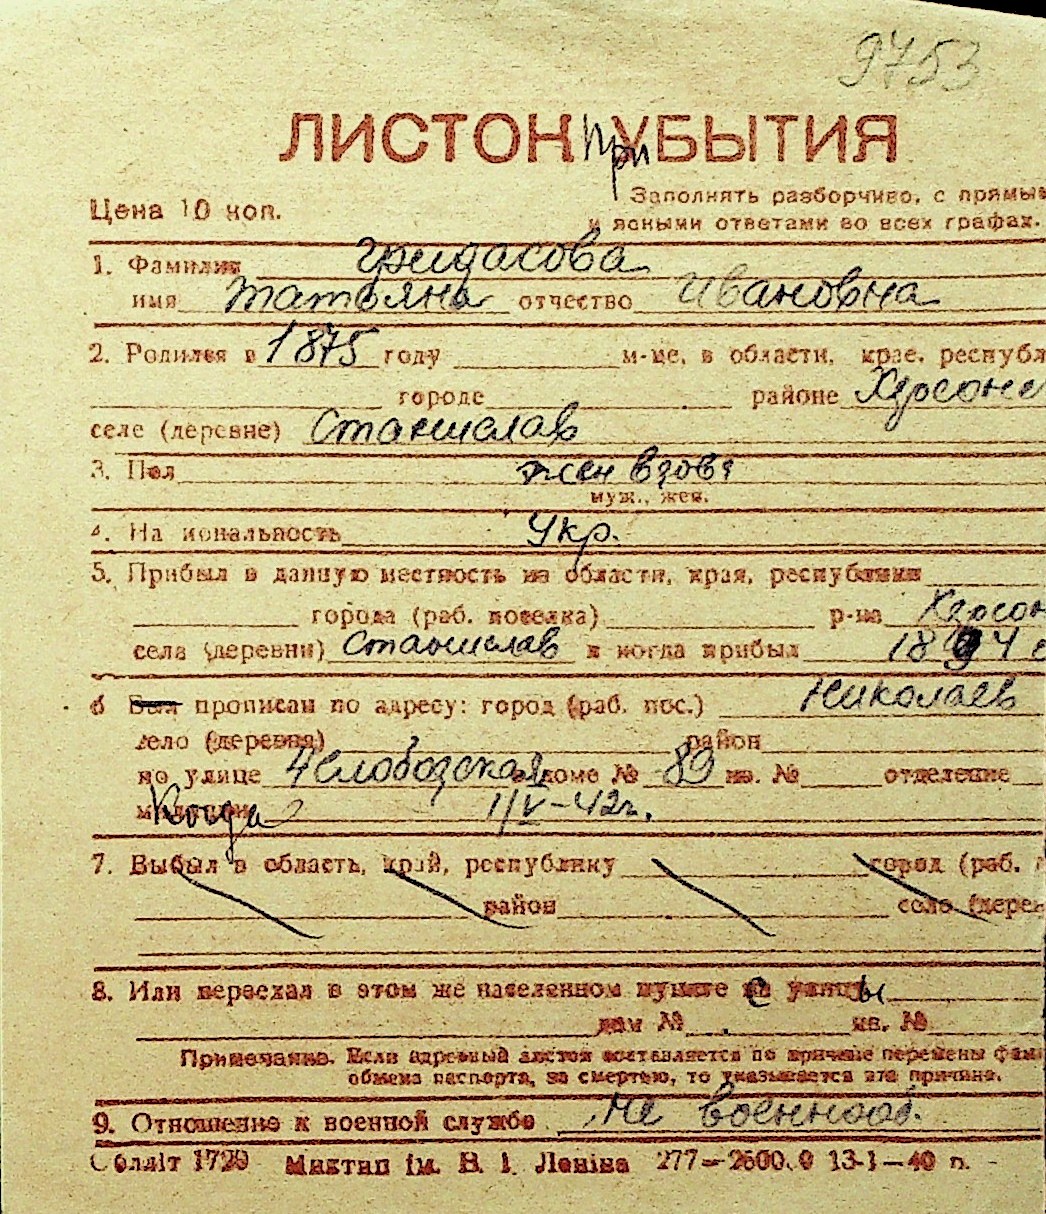 9753
ЛИСТОК ПриУБЫТИЯ
Цена 10 коп.
Заполнять разборчиво, с прямые
и ясными ответами во всех графах.
1. Фамилия Гридасова
имя Татьяна отчество Ивановна
2. Родился в 1875 году м-це, в области, крае, республ
городе районе Херсонс
селе (деревне) Станислав
3. Пол жен вдова
муж., жен.
4. Национальность Укр.
5. Прибыл в данную местность из области, края, республики
города (раб. поселка) р-на Херсон
села (деревни) Станислав и когда прибыл 1894
6 Был прописан по адресу: город (раб. пос.) Николаев
село (деревня) район
по улице 4 Слободская в доме № 89 кв. № отделение
милиции Когда 1/V-42г.
7. Выбыл в область, край, республику город (раб.
район село (дерев
8. Или переехал в этом же населенном пункте с улицы
дом № кв. №
Примечание. Если адресный листок составляется по причине перемены фам
обмена паспорта, за смертью, то указывается эта причина.
9. Отношение к военной службе Не военнооб.
Обллiт 1729 Миктип iм. В. I. Ленiна 277—2500.0 13-1—40 п.